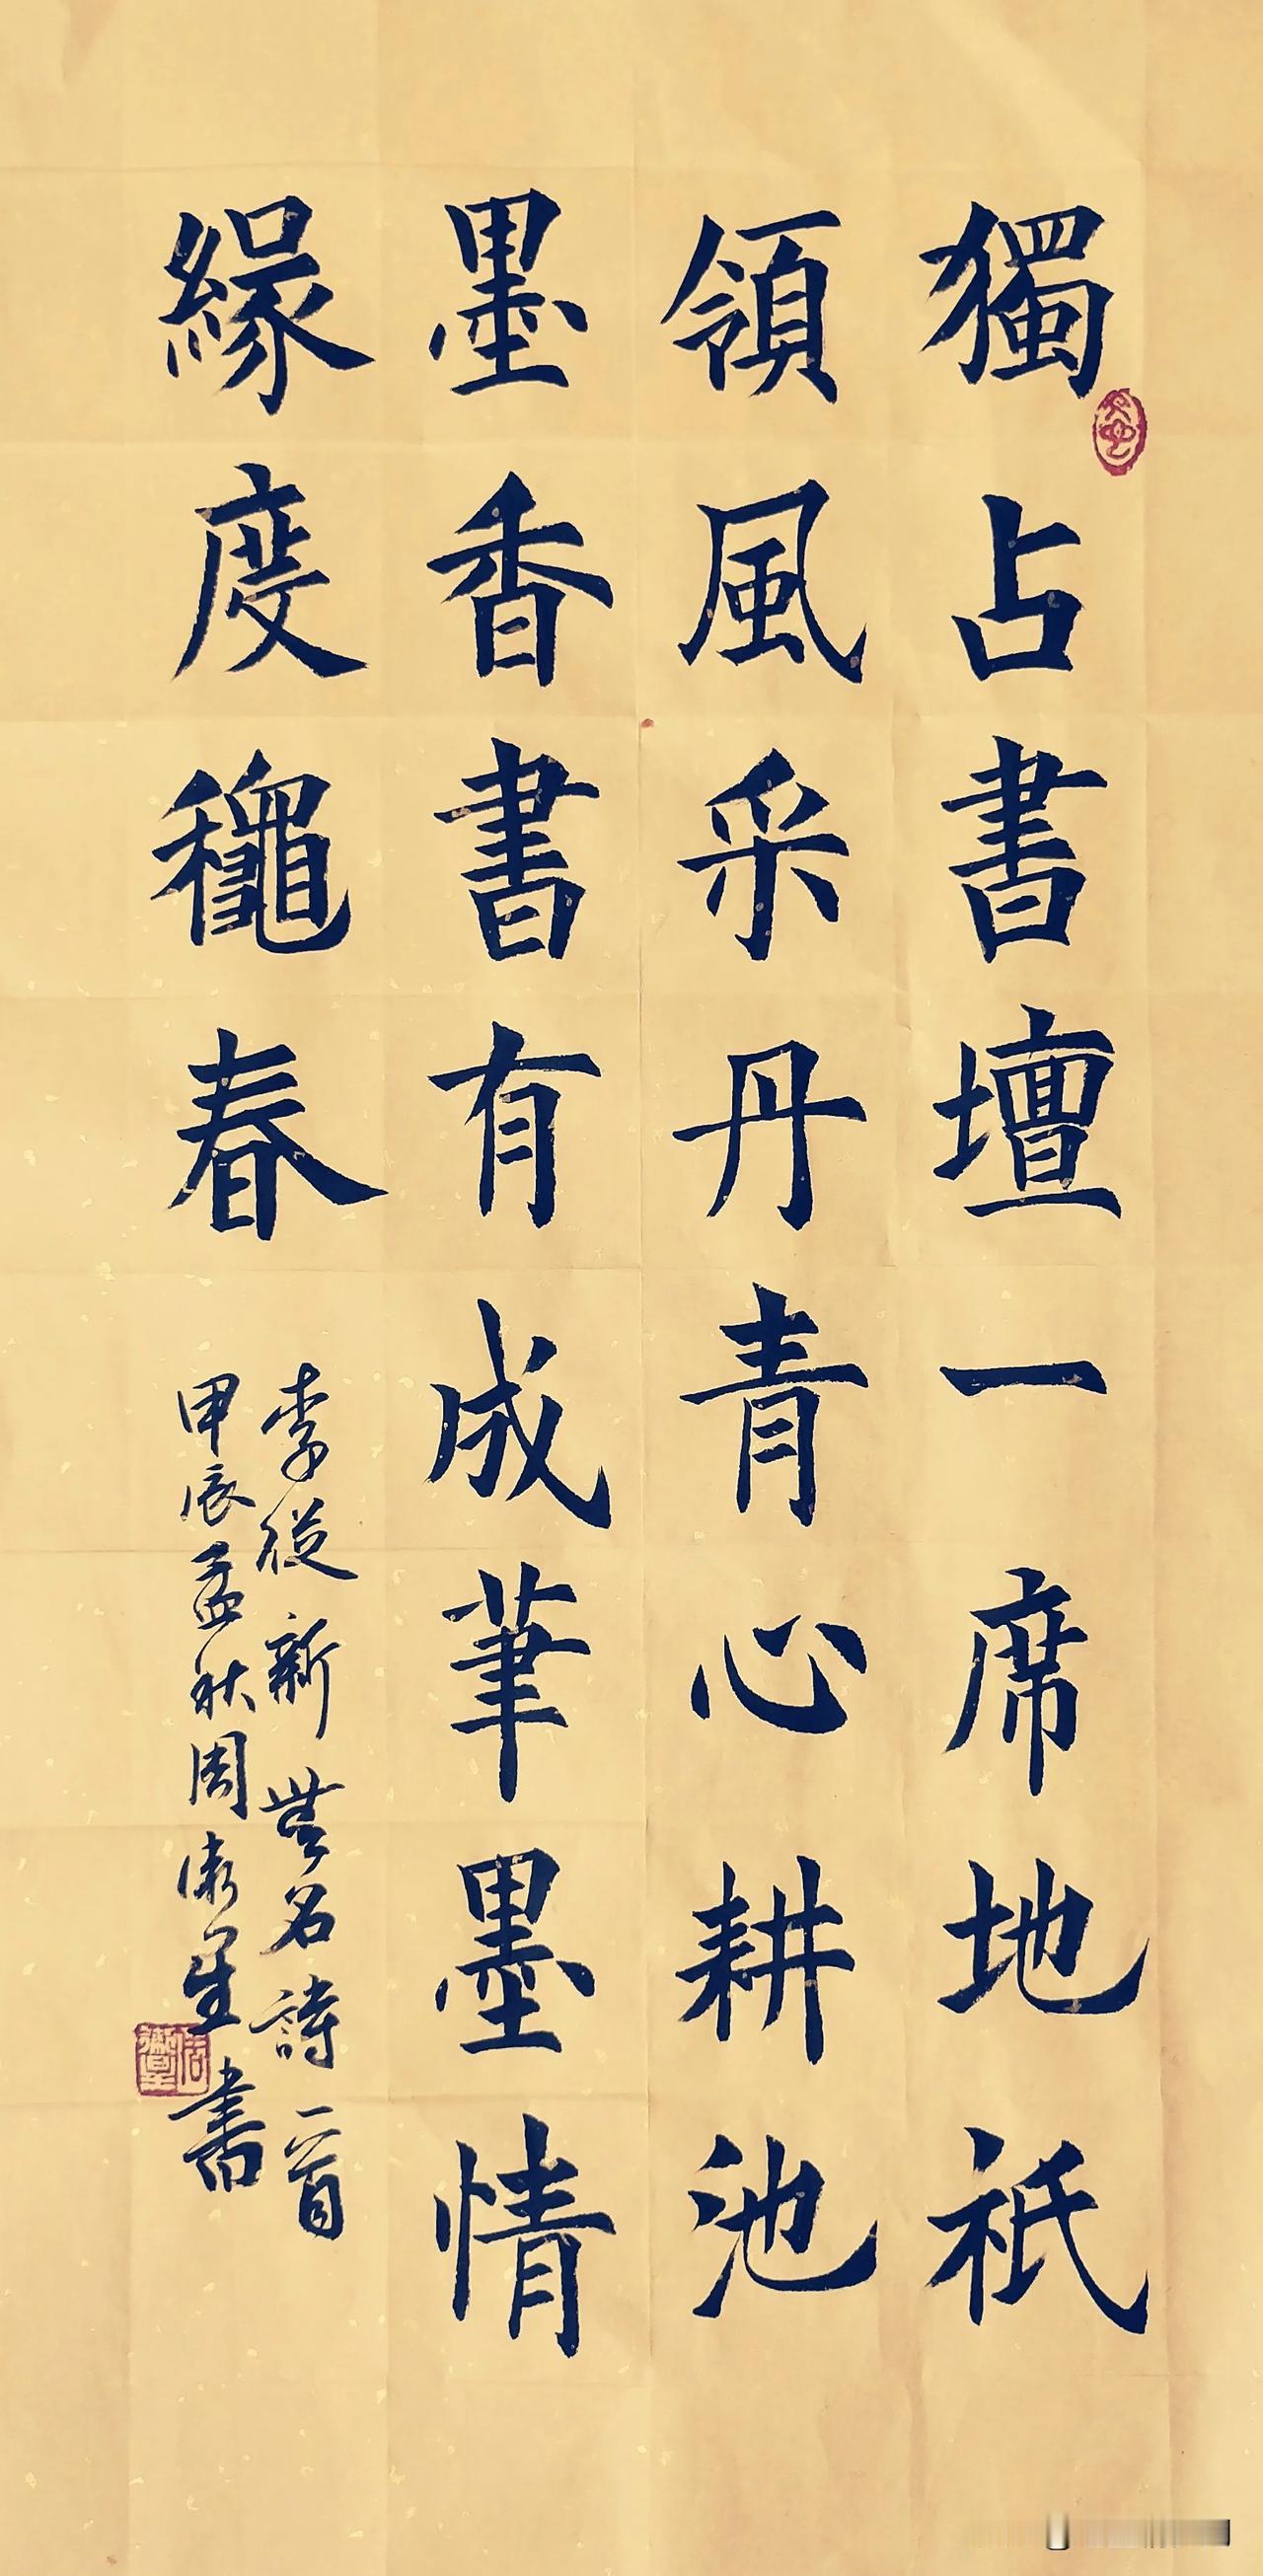 獨占書壇一席地祇
領風采丹青心耕池
墨香書有成筆墨情
緣度龝春
李從新無名詩一首
甲辰孟秋周衛星書
周衛星